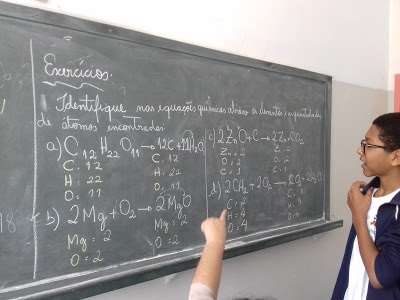 Exercícios.
Identifique nas equações químicas abaixo os elementos e a quantidade
de átomos encontrados.
a) C12H22O11 → 12C + 11H2O
C: 12
H: 22
O: 11
C: 12
H: 22
O: 11
b) 2Mg + O2 → 2MgO
Mg = 2
O = 2
Mg = 2
O = 2
c) 2ZnO + C → 2Zn + CO2
Zn = 2
O = 2
C = 1
d) 2CH2 + 2O2
C = 2
H = 4
O = 4
18